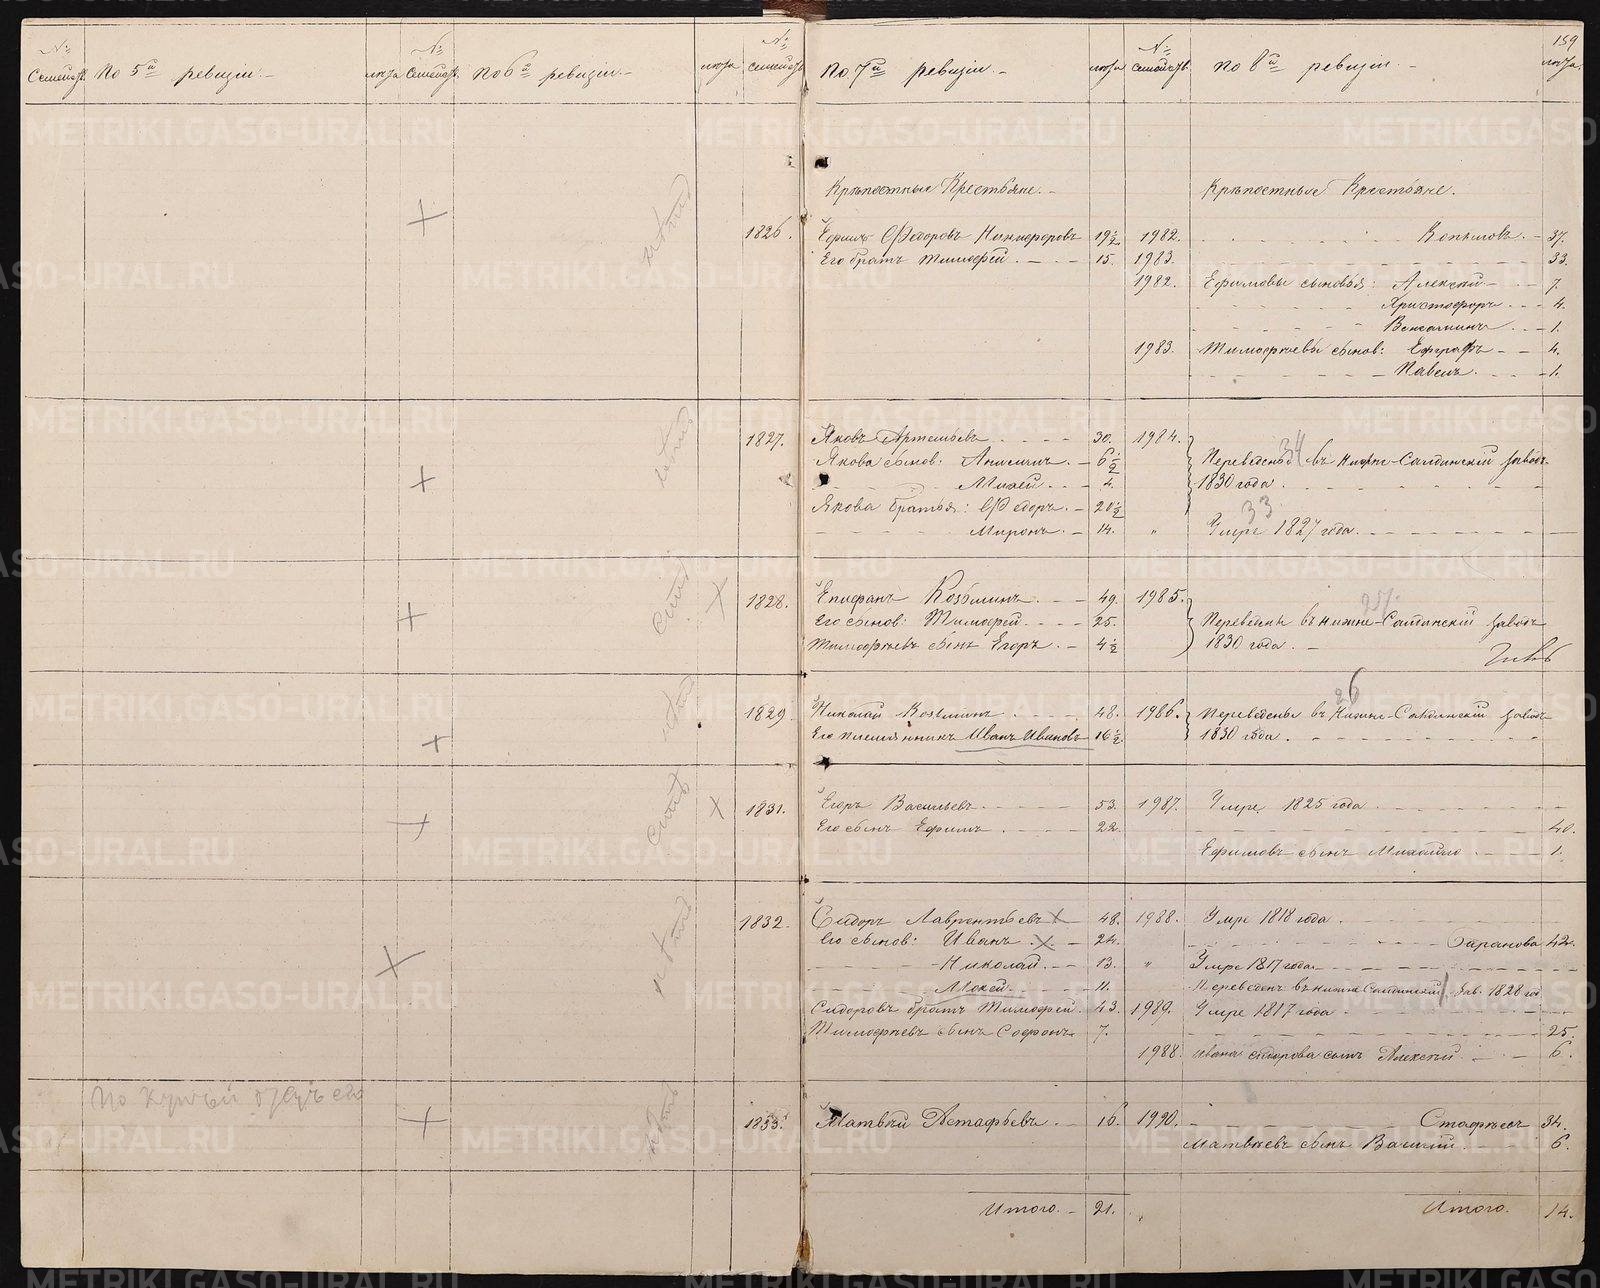 159
№ Семейств. По 5й ревизіи. лѣта № Семейств. По 6й ревизіи. лѣта № Семейств. По 7й ревизіи. лѣта № Семейств. По 8й ревизіи. лѣта.
Крѣпостные Крестьяне. Крѣпостные Крестьяне.
1826. Ефимъ Ѳедоровъ Никифоровъ 19½ 1982. Копыловъ. 37.
Его братъ Тимофей. 15. 1983. 33.
1982. Ефимовы сыновья: Алексѣй 7.
Христофоръ 4.
Веньаминъ 1.
1983. Тимофѣевы сынов: Евграфъ 4.
Павелъ. 1.
1827. Яковъ Артемьевъ 30. 1984.
Якова сынов: Анисимъ. 6½ Переведены въ Нижне-Салдинскій заводъ
Михей 4. 1830 года.
34
Якова братья: Ѳедоръ. 20½
33
Миронъ. 14. " Умре 1827 года.
1828. Епифанъ Козьминъ. 49. 1985.
Его сынов: Тимофей. 25. Переведены въ Нижне-Салдинскій заводъ
Тимофѣевъ сынъ Егоръ. 4½ 1830 года.
26
1829 Николай Козьминъ 48. 1986. Переведены въ Нижне-Салдинскій заводъ
Его племянникъ Иванъ Ивановъ 16½ 1830 года.
1831. Егоръ Васильевъ 53. 1987. Умре 1825 года
Его сынъ Ефимъ 22. 40.
Ефимовъ сынъ Михайло 1.
1832. Сидоръ Лаврентьевъ 48. 1988. Умре 1818 года.
Его сынов: Иванъ. 24. 42.
Николай. 13. " Умре 1817 года
Мокей. 11. Переведенъ въ Нижне Салдинскій зав. 1828 год
Сидоровъ братъ Тимофей. 43. 1989. Умре 1817 года
Тимофѣевъ сынъ Софонъ 7. 25.
1988. Ивана Сидорова сынъ Алексѣй 6.
1833. Матвѣй Астафьевъ. 16. 1990. 34.
Матвѣевъ сынъ Василій. 6.
Итого. 21. Итого. 14.
METRIKI.GASO-URAL.RU